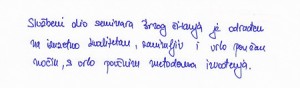 Službeni dio seminara brzog čitanja je odrađen
na izuzetno kvalitetan, zanimljiv i vrlo poučan
način, s vrlo poučnim metodama izvođenja.